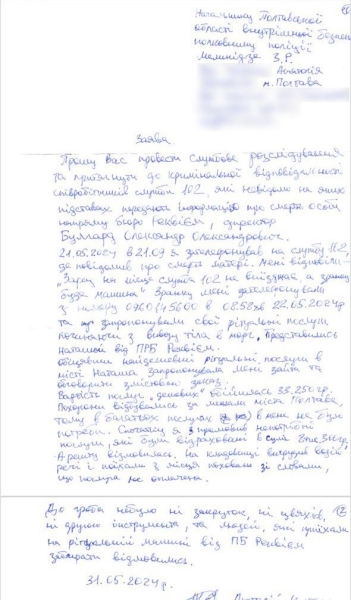 Начальнику Полтавської
області внутрішньої безпеки
полковнику поліції
З.Р.
Анатолія
м. Полтава
Заява
Прошу Вас провести службове розслідування
та притягнути до кримінальної відповідальності
співробітників служби 102, які невідомо на яких
підставах передають інформацію про смерть особи
напряму бюро Реквієм, директор
Буллард Олександр Олександрович.
21.05.2024 в 21.09 я зателефонував на службу 102,
де повідомив про смерть матері. Мені відповіли
"Зараз на місце служба 102 не виїзжає, а зранку
буде машина". Зранку мені зателефонували
з номеру 0960145600 в 08.52хв 22.05.2024р
та запропонували свої рітуальні послуги
починаючи з вивозу тіла в морг. Представились
Наташей від ПРБ Реквієм
рітуальні послуги в
місті Наташа запропонувала мені зайти та
обговорити змістовні заказ.
Вартість послуг "дешевих" 33.250гр.
Похорони відбувались за межами міста Полтава,
тому в багатьох послугах в мене не було
потреби. Спочатку я непотрібні
послуги, які були відраховані в сумі
А решту відмовились. На кладовищі вигрузив водій
речі і поїхали з місця поховань зі словами,
що послуга не оплачена.
До гроба небуло ні закруток, ні цвяхів,
ні другого інструмента, та людей, які приїхали
на рітуальній машині від ПБ Реквієм
відмовились.
31.05.2024р.